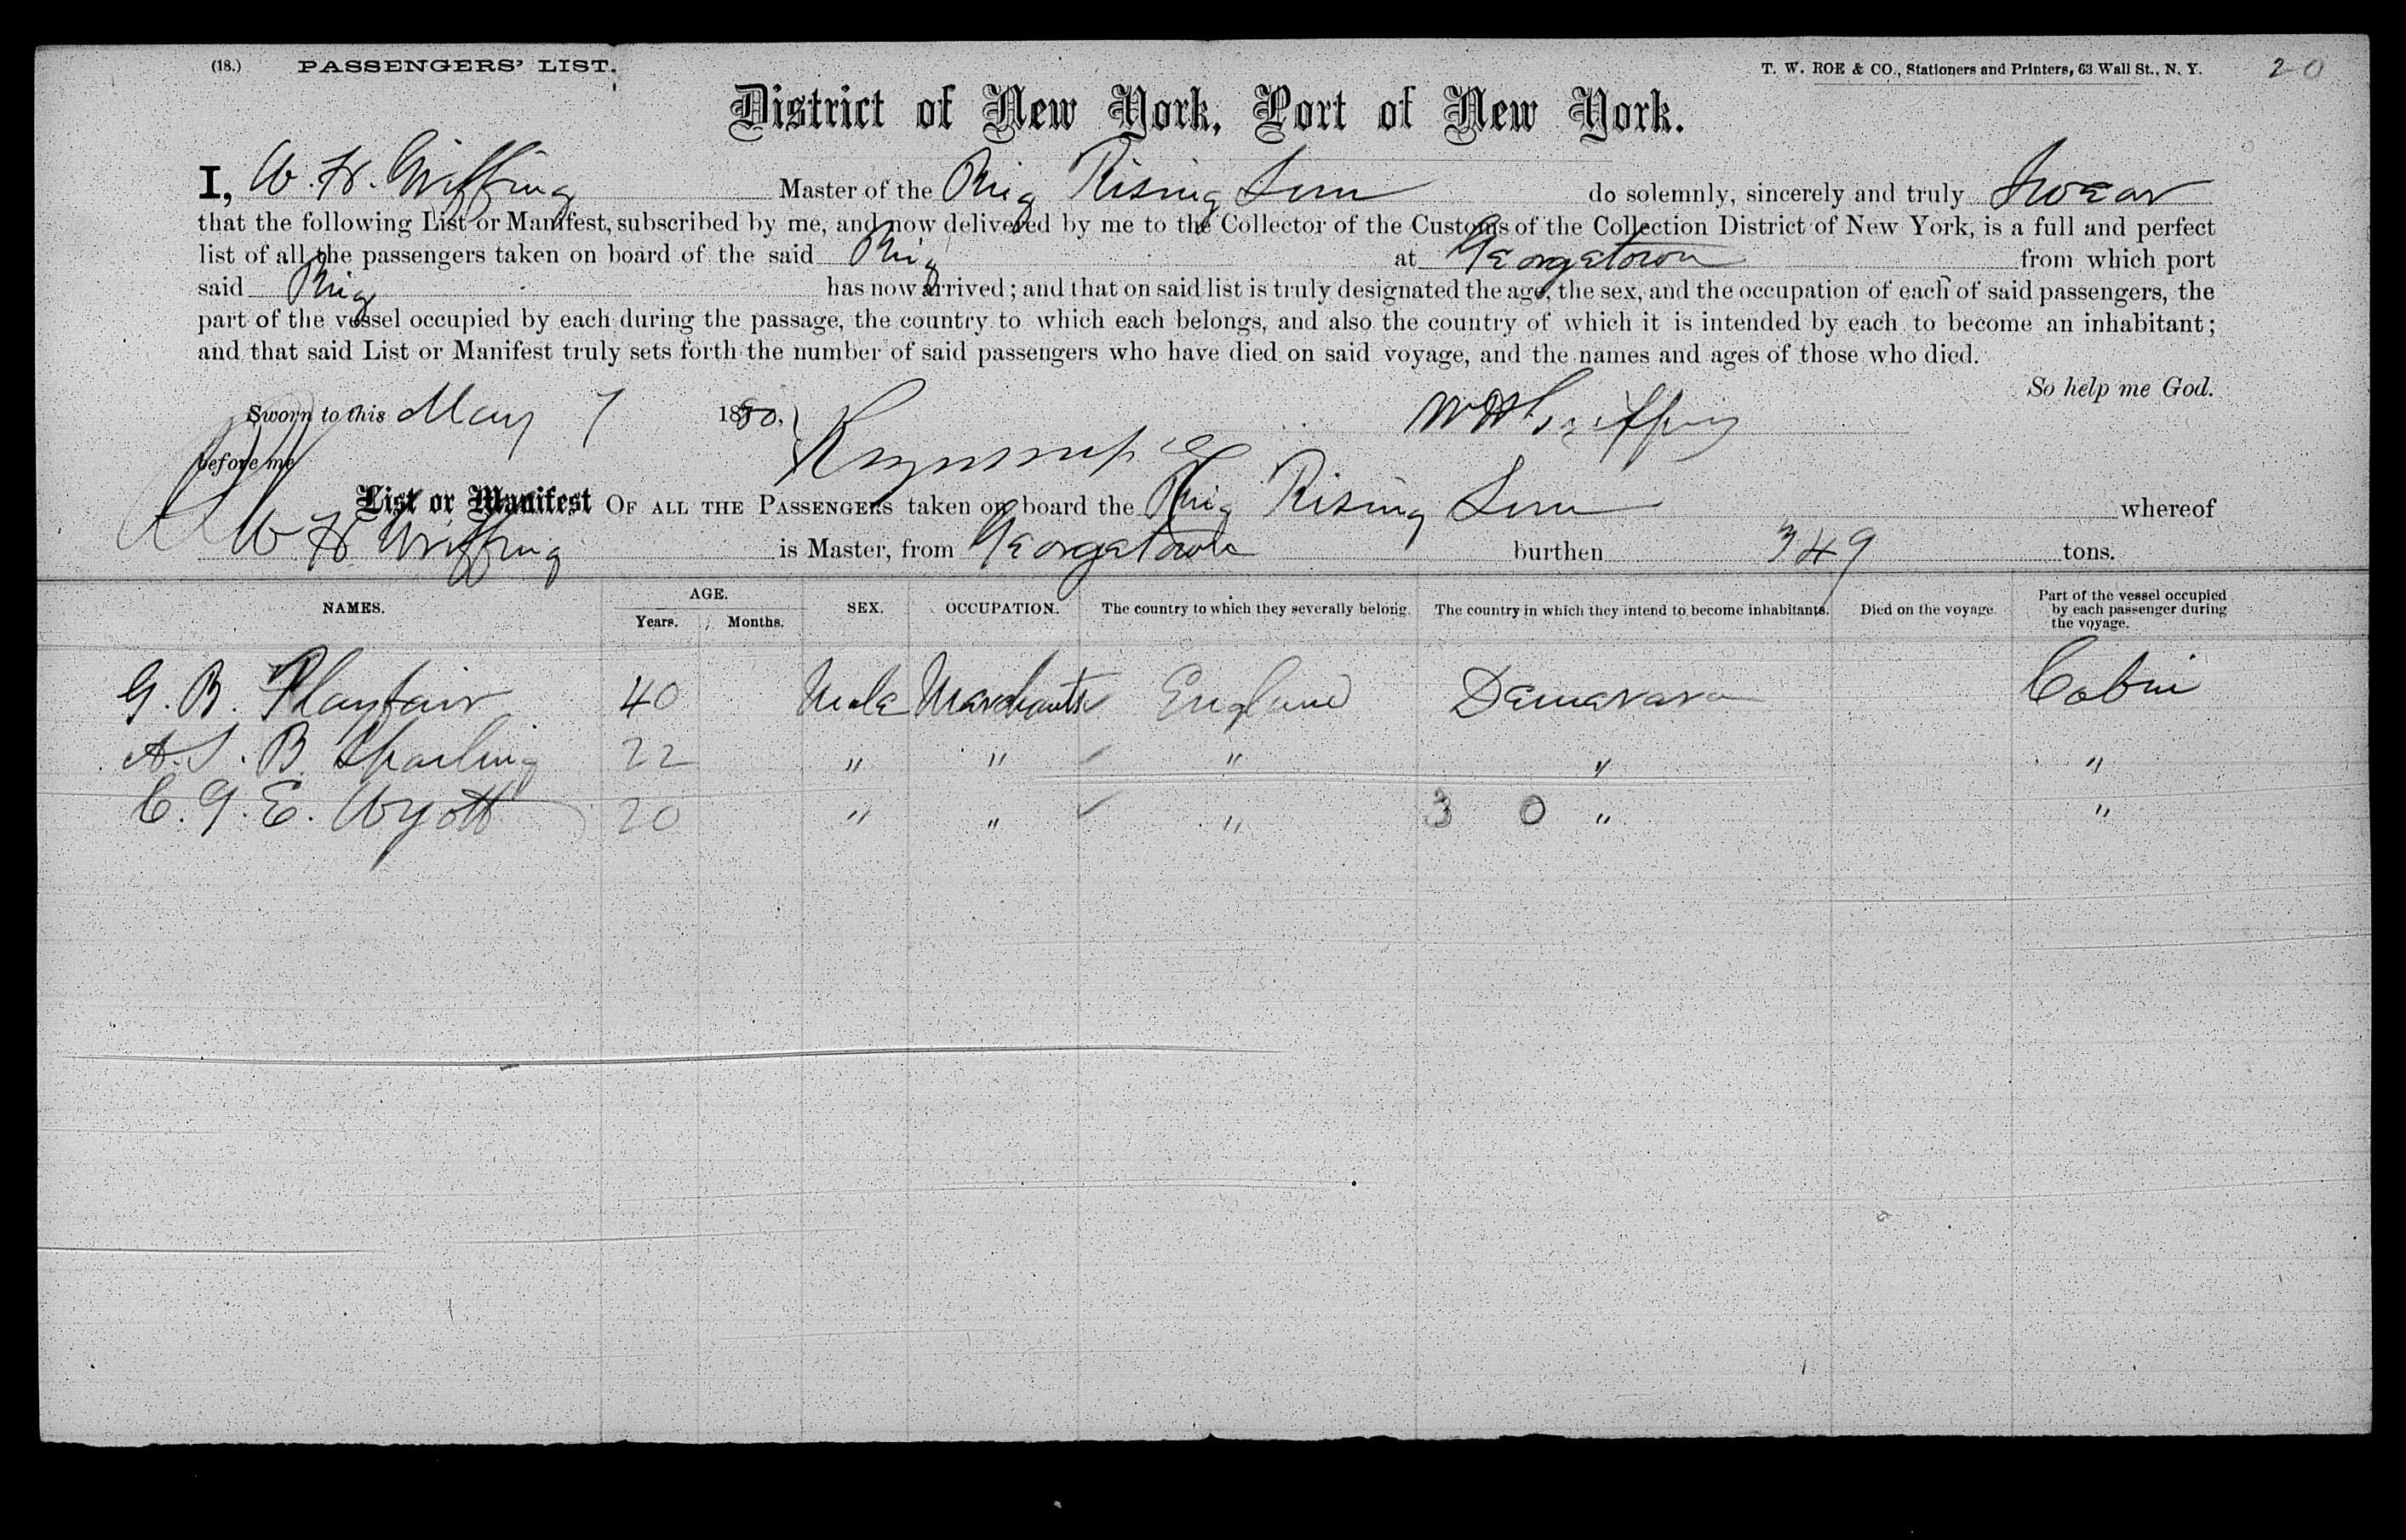 (18.) PASSENGERS' LIST. T. W. ROE & CO., Stationers and Printers, 63 Wall St., N. Y. 20
District of New York, Port of New York.
I, W. H. Griffing Master of the Brig Rising Sun do solemnly, sincerely and truly Swear
that the following List or Manifest, subscribed by me, and now delivered by me to the Collector of the Customs of the Collection District of New York, is a full and perfect
list of all the passengers taken on board of the said Brig at Georgetown from which port
said Brig has now arrived; and that on said list is truly designated the age, the sex, and the occupation of each of said passengers, the
part of the vessel occupied by each during the passage, the country to which each belongs, and also the country of which it is intended by each to become an inhabitant;
and that said List or Manifest truly sets forth the number of said passengers who have died on said voyage, and the names and ages of those who died.
So help me God.
Sworn to this May 7 1880, W H Griffing
before me
List or Manifest OF ALL THE PASSENGERS taken on board the Brig Rising Sun whereof
W H Griffing is Master, from Georgetown burthen 349 tons.
NAMES. AGE. Years. Months. SEX. OCCUPATION. The country to which they severally belong. The country in which they intend to become inhabitants. Died on the voyage. Part of the vessel occupied by each passenger during the voyage.
G. B. Playfair 40 Male Marchants England Demarara Cabin
A. S. B. Sparling 22 " " " " "
C. G. E. Wyott 20 " " " 3 0 " "